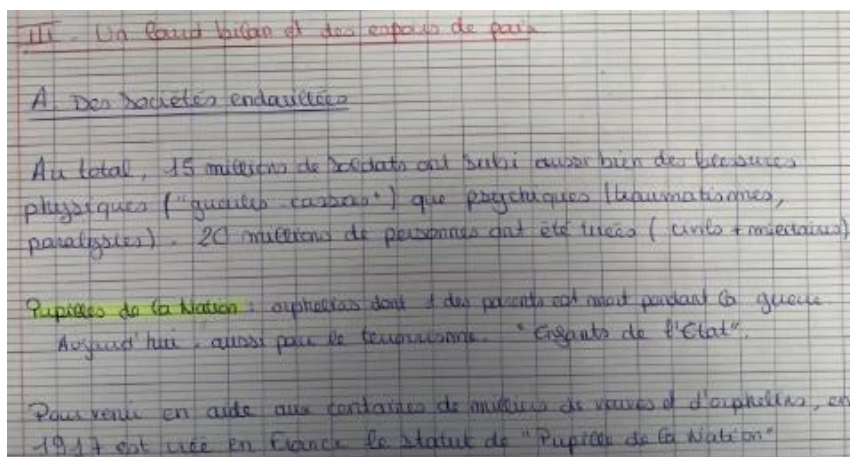 III - Un lourd bilan et des espoirs de paix
A. Des sociétés endeuillées
Au total, 15 millions de soldats ont subi aussi bien des blessures
physiques ("gueules cassées") que psychiques (traumatismes,
paralysies). 20 millions de personnes ont été tuées (civils + militaires)
Pupilles de la Nation : orphelins dont 1 des parents est mort pendant la guerre.
Aujourd'hui, aussi pour le terrorisme. "Enfants de l'Etat".
Pour venir en aide aux centaines de milliers de veuves et d'orphelins, en
1917 est créé en France le statut de "Pupilles de la Nation"